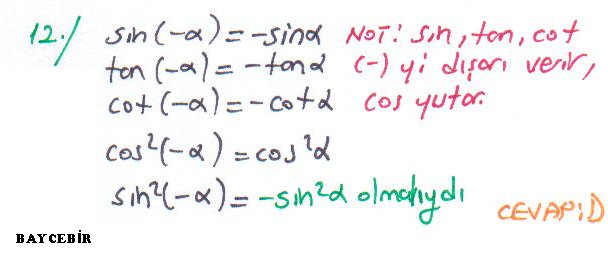 12./ sin(-α) = -sinα NOT: sin, tan, cot
tan(-α) = -tanα (-) yi dışarı verir,
cot(-α) = -cotα cos yutar.
cos²(-α) = cos²α
sin²(-α) = -sin²α olmalıydı
CEVAP: D
BAYCEBİR